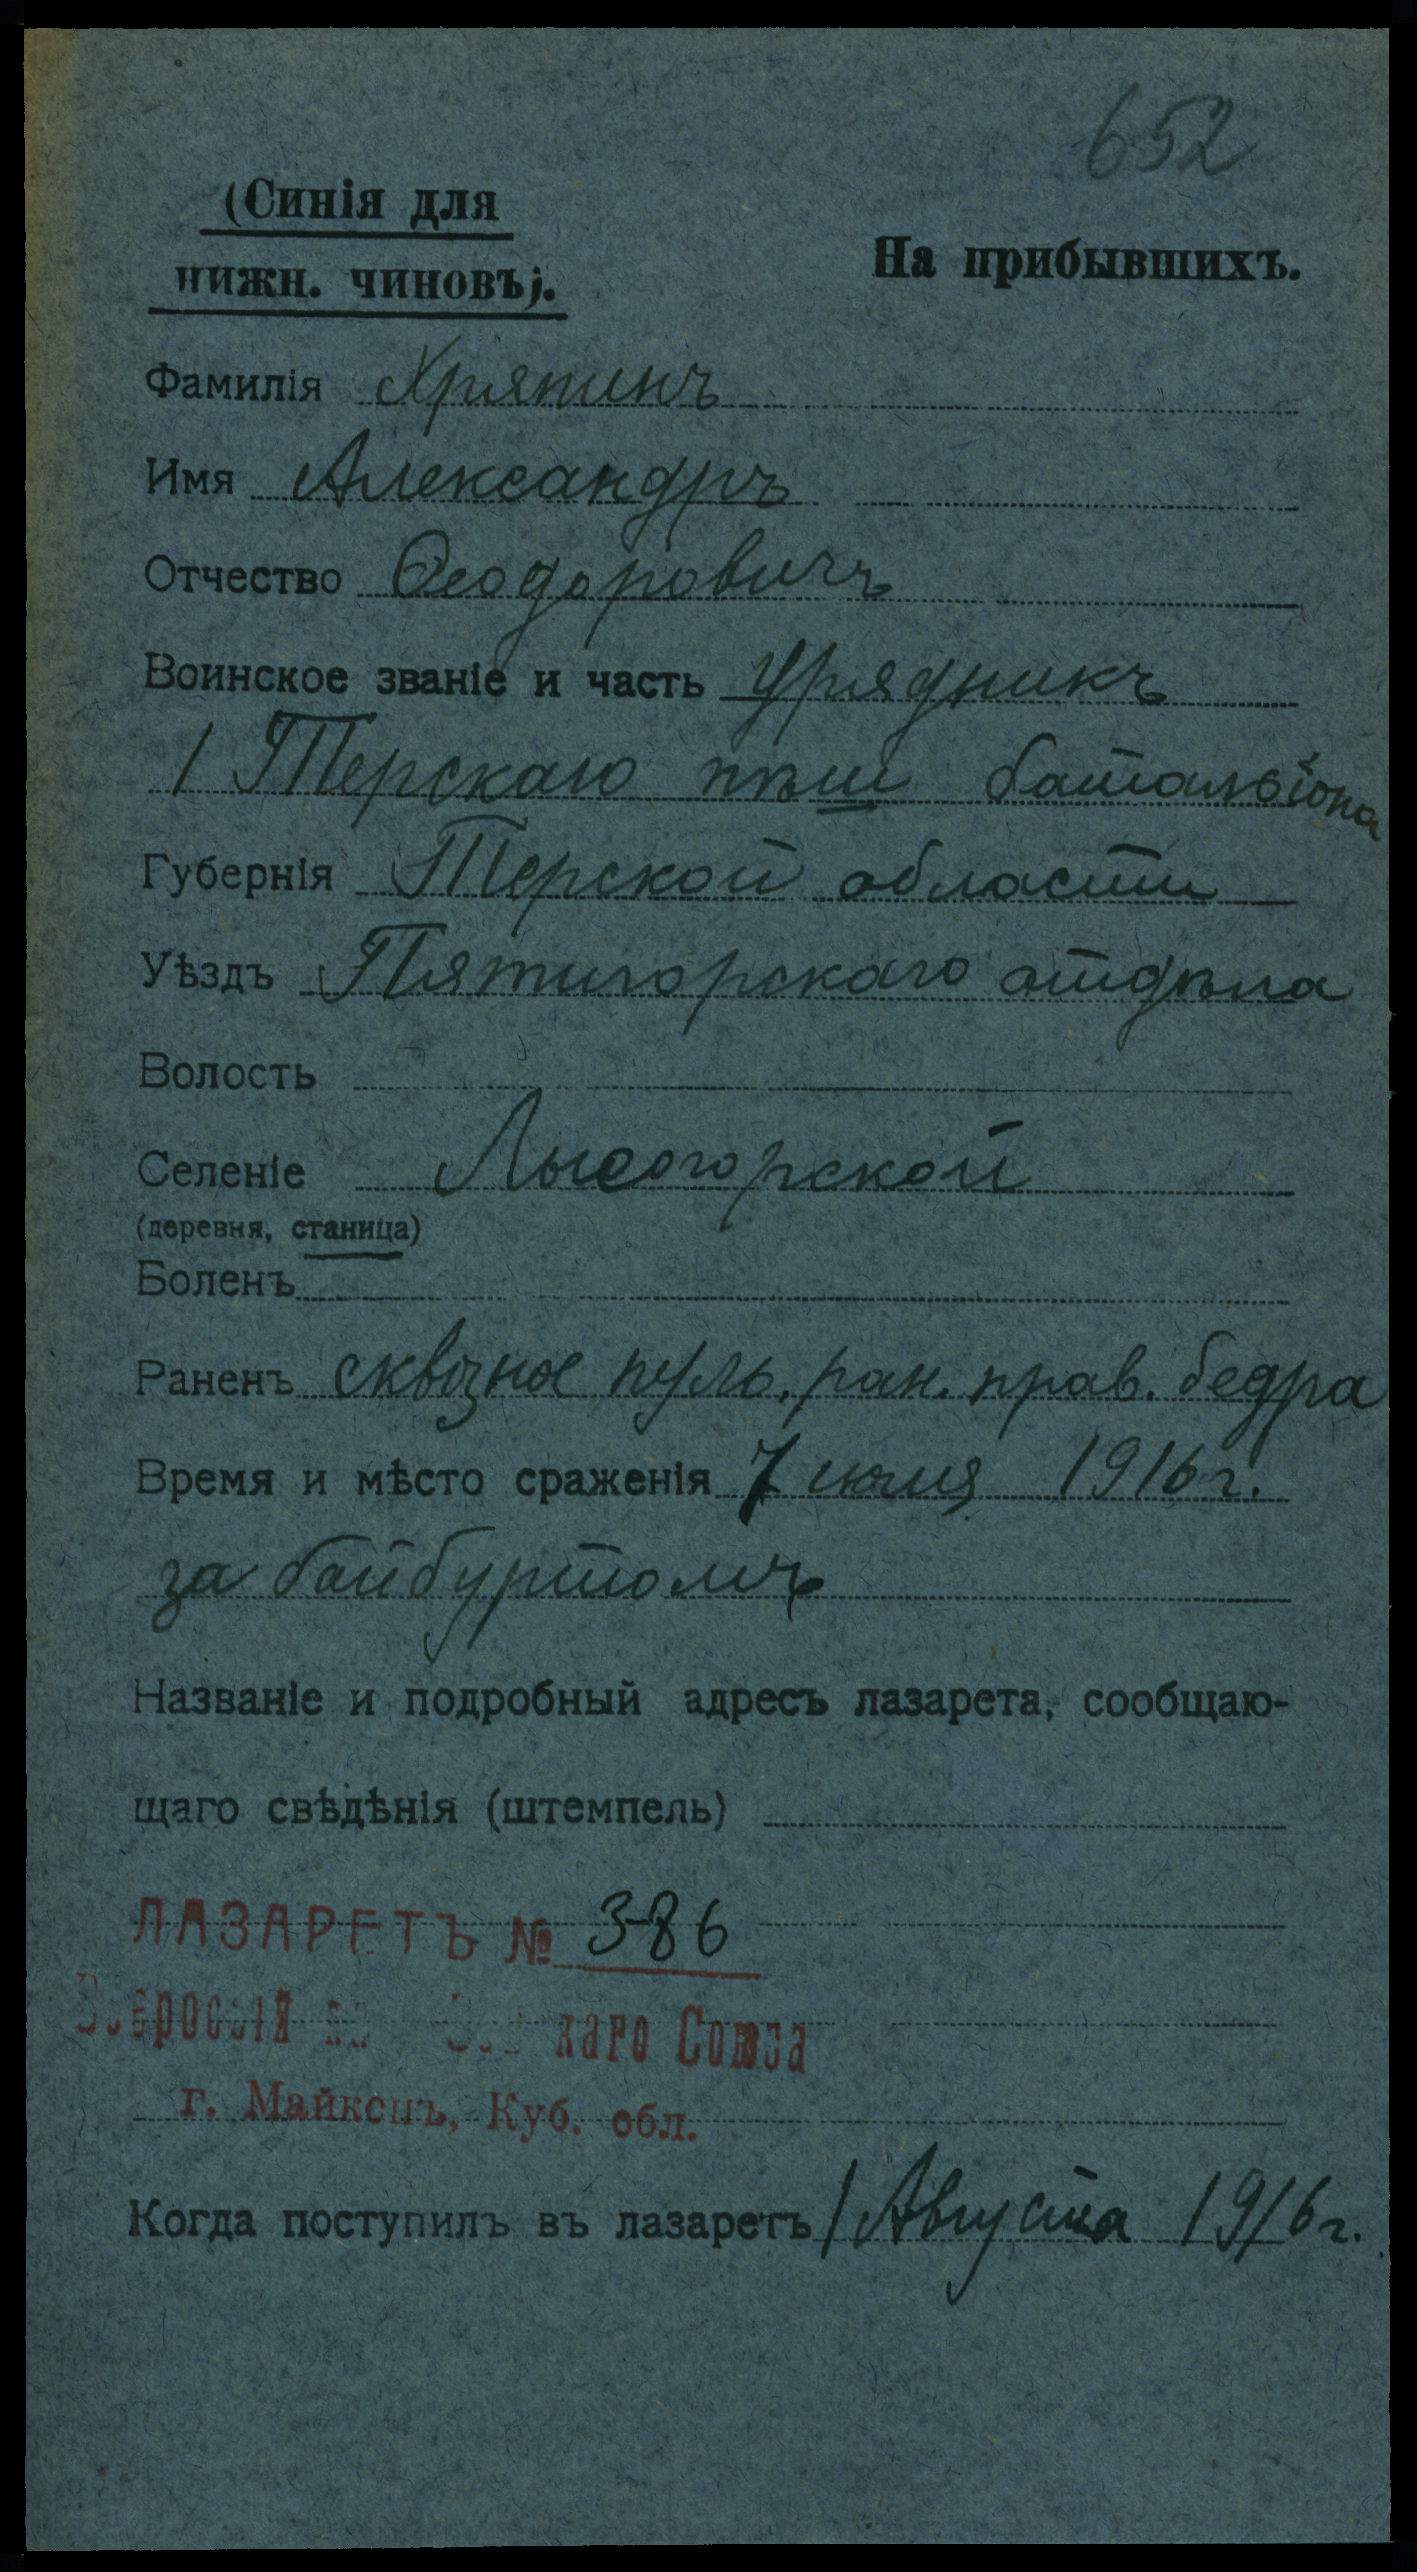 652
(Синія для
нижн. чиновъ).
На прибывшихъ.
Фамилія Хрятинъ
Имя Александръ
Отчество Ѳеодоровичъ
Воинское званіе и часть Урядникъ
1 Терскаго пѣш баталіона
Губернія Терской области
Уѣздъ Пятигорскаго отдѣла
Волость
Селеніе Лысогорской
(деревня, станица)
Боленъ
Раненъ сквозное пуль. ран. прав. бедра
Время и мѣсто сраженія 7 июля 1916 г.
за байбуртомъ
Названіе и подробный адресъ лазарета, сообщаю-
щаго свѣдѣнія (штемпель)
ЛАЗАРЕТЪ № 386
Союза
г. Майкопъ, Куб. обл.
Когда поступилъ въ лазаретъ 1 Августа 1916 г.